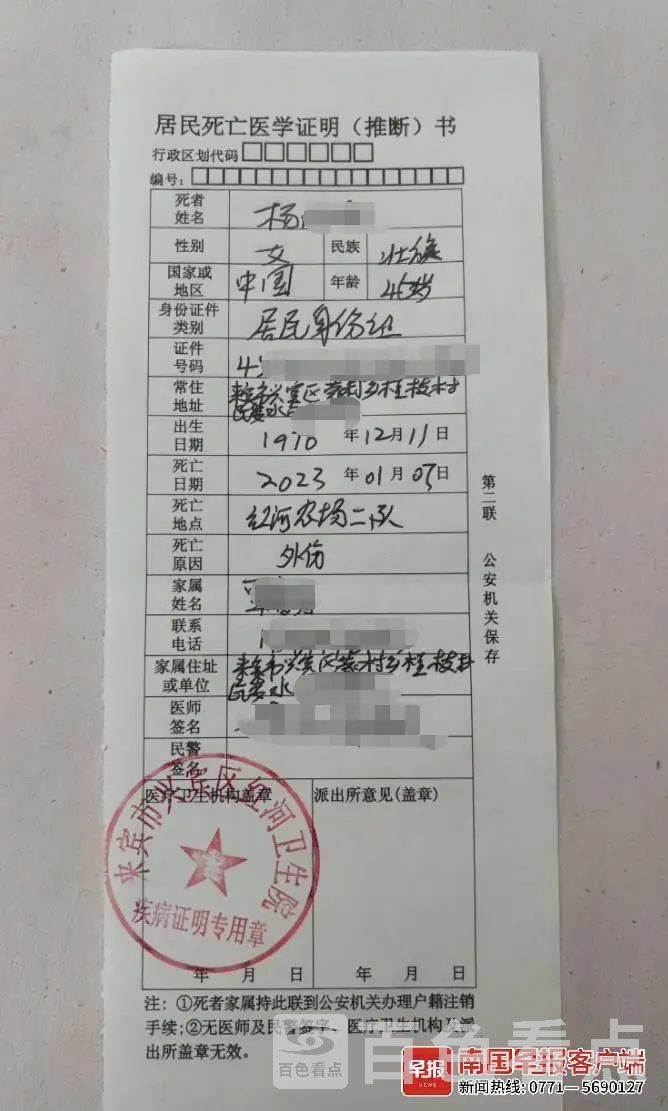 居民死亡医学证明（推断）书
行政区划代码□□□□□□
编号：□□□□□□□□□□□□□□□□□
死者姓名 杨
性别 女 民族 壮族
国家或地区 中国 年龄 45岁
身份证件类别 居民身份证
证件号码 4
常住地址 来宾市兴宾区 乡桂枝村民委水
出生日期 1970年12月11日
死亡日期 2023年01月05日
死亡地点 红河农场二队
死亡原因 外伤
家属姓名
联系电话 1
家属住址或单位 来宾市兴宾区 乡桂枝村民委水
医师签名
民警签名
医疗卫生机构盖章 派出所意见(盖章)
来宾市兴宾区红河卫生院
疾病证明专用章
年 月 日 年 月 日
注：①死者家属持此联到公安机关办理户籍注销
手续;②无医师及民警签字、医疗卫生机构及派
出所盖章无效。
第二联 公安机关保存
百色看点
百色看点
早报 NEWS 南国早报客户端
新闻热线: 0771—5690127